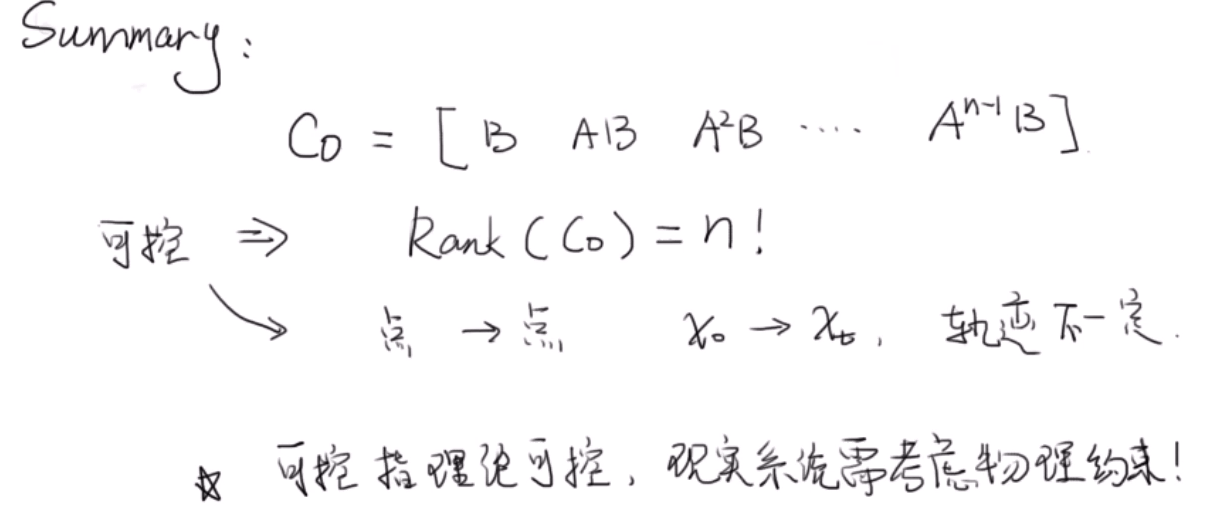 Summary:
Co = [ B AB A²B ···· Aⁿ⁻¹B ]
可控 ⇒ Rank (Co) = n!
→ 点 → 点 x₀ → xₜ, 轨迹不一定.
☆ 可控指理论可控, 现实系统需考虑物理约束!